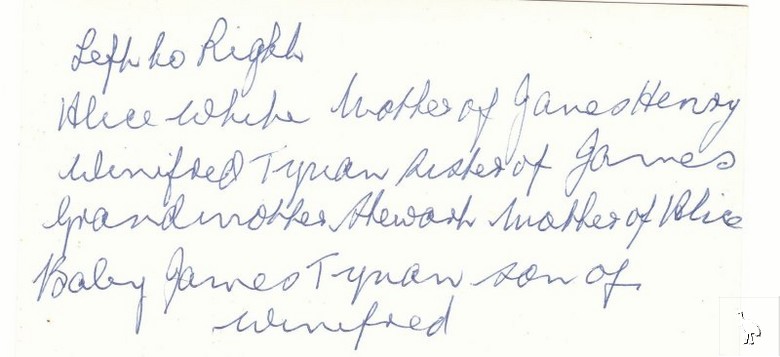 Left to Right
Alice White Mother of James Henry
Winifred Tynan sister of James
Grandmother Stewart Mother of Alice
Baby James Tynan son of
Winifred